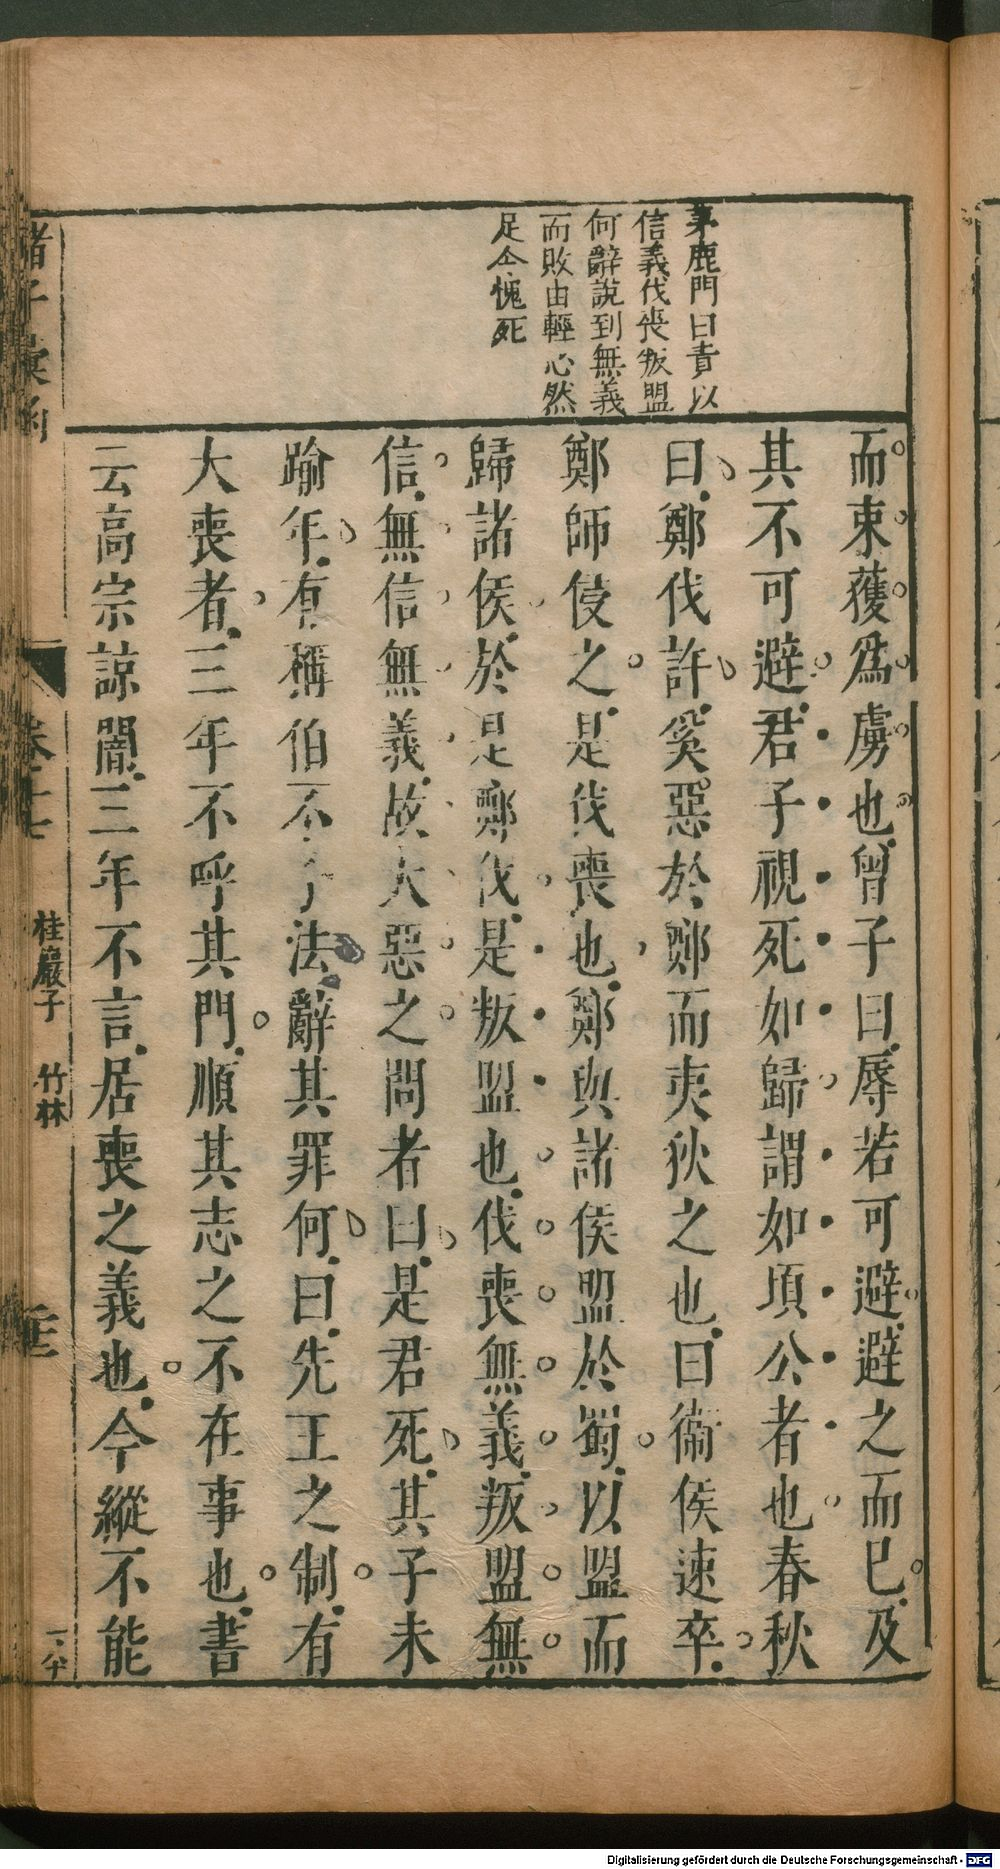 茅鹿門曰責以
信義伐喪叛盟
何辭說到無義
而敗由輕心然
足令愧死
而束獲為虜也曾子曰辱若可避避之而已及
其不可避君子視死如歸謂如頃公者也春秋
曰鄭伐許奚惡於鄭而夷狄之也曰衛侯速卒
鄭師侵之是伐喪也鄭與諸侯盟於蜀以盟而
歸諸侯於是鄭伐是叛盟也伐喪無義叛盟無
信無信無義故大惡之問者曰是君死其子未
踰年有稱伯不子法辭其罪何曰先王之制有
大喪者三年不呼其門順其志之不在事也書
云高宗諒闇三年不言居喪之義也今縱不能
諸子彙函
桂巖子 竹林
Digitalisierung gefördert durch die Deutsche Forschungsgemeinschaft - DFG